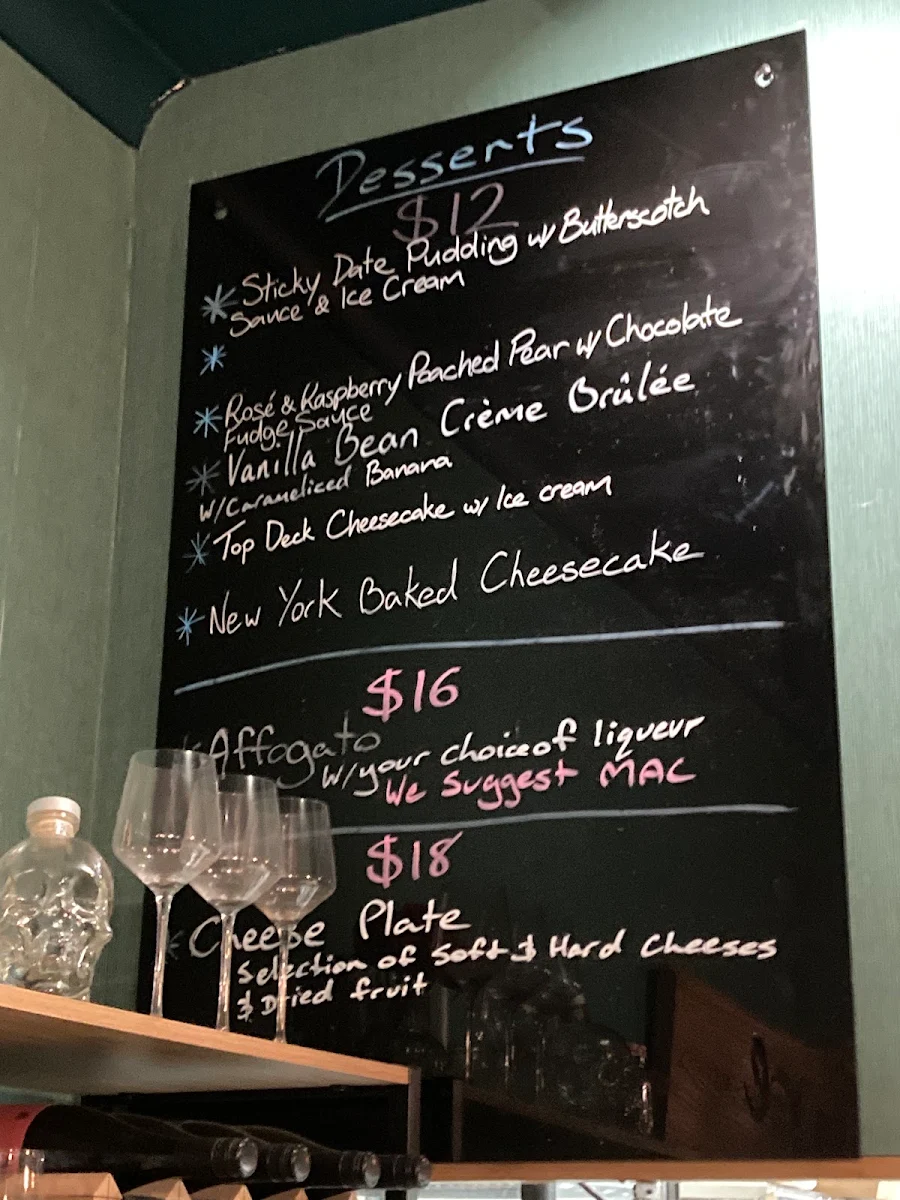 Desserts
$12
* Sticky Date Pudding w/ Butterscotch
Sauce & Ice Cream
*
* Rosé & Raspberry Poached Pear w/ Chocolate
Fudge Sauce
* Vanilla Bean Crème Brûlée
w/Carameliced Banana
* Top Deck Cheesecake w/ Ice cream
* New York Baked Cheesecake
$16
* Affogato
w/your choice of liqueur
We Suggest MAC
$18
* Cheese Plate
Selection of Soft & Hard Cheeses
& Dried fruit